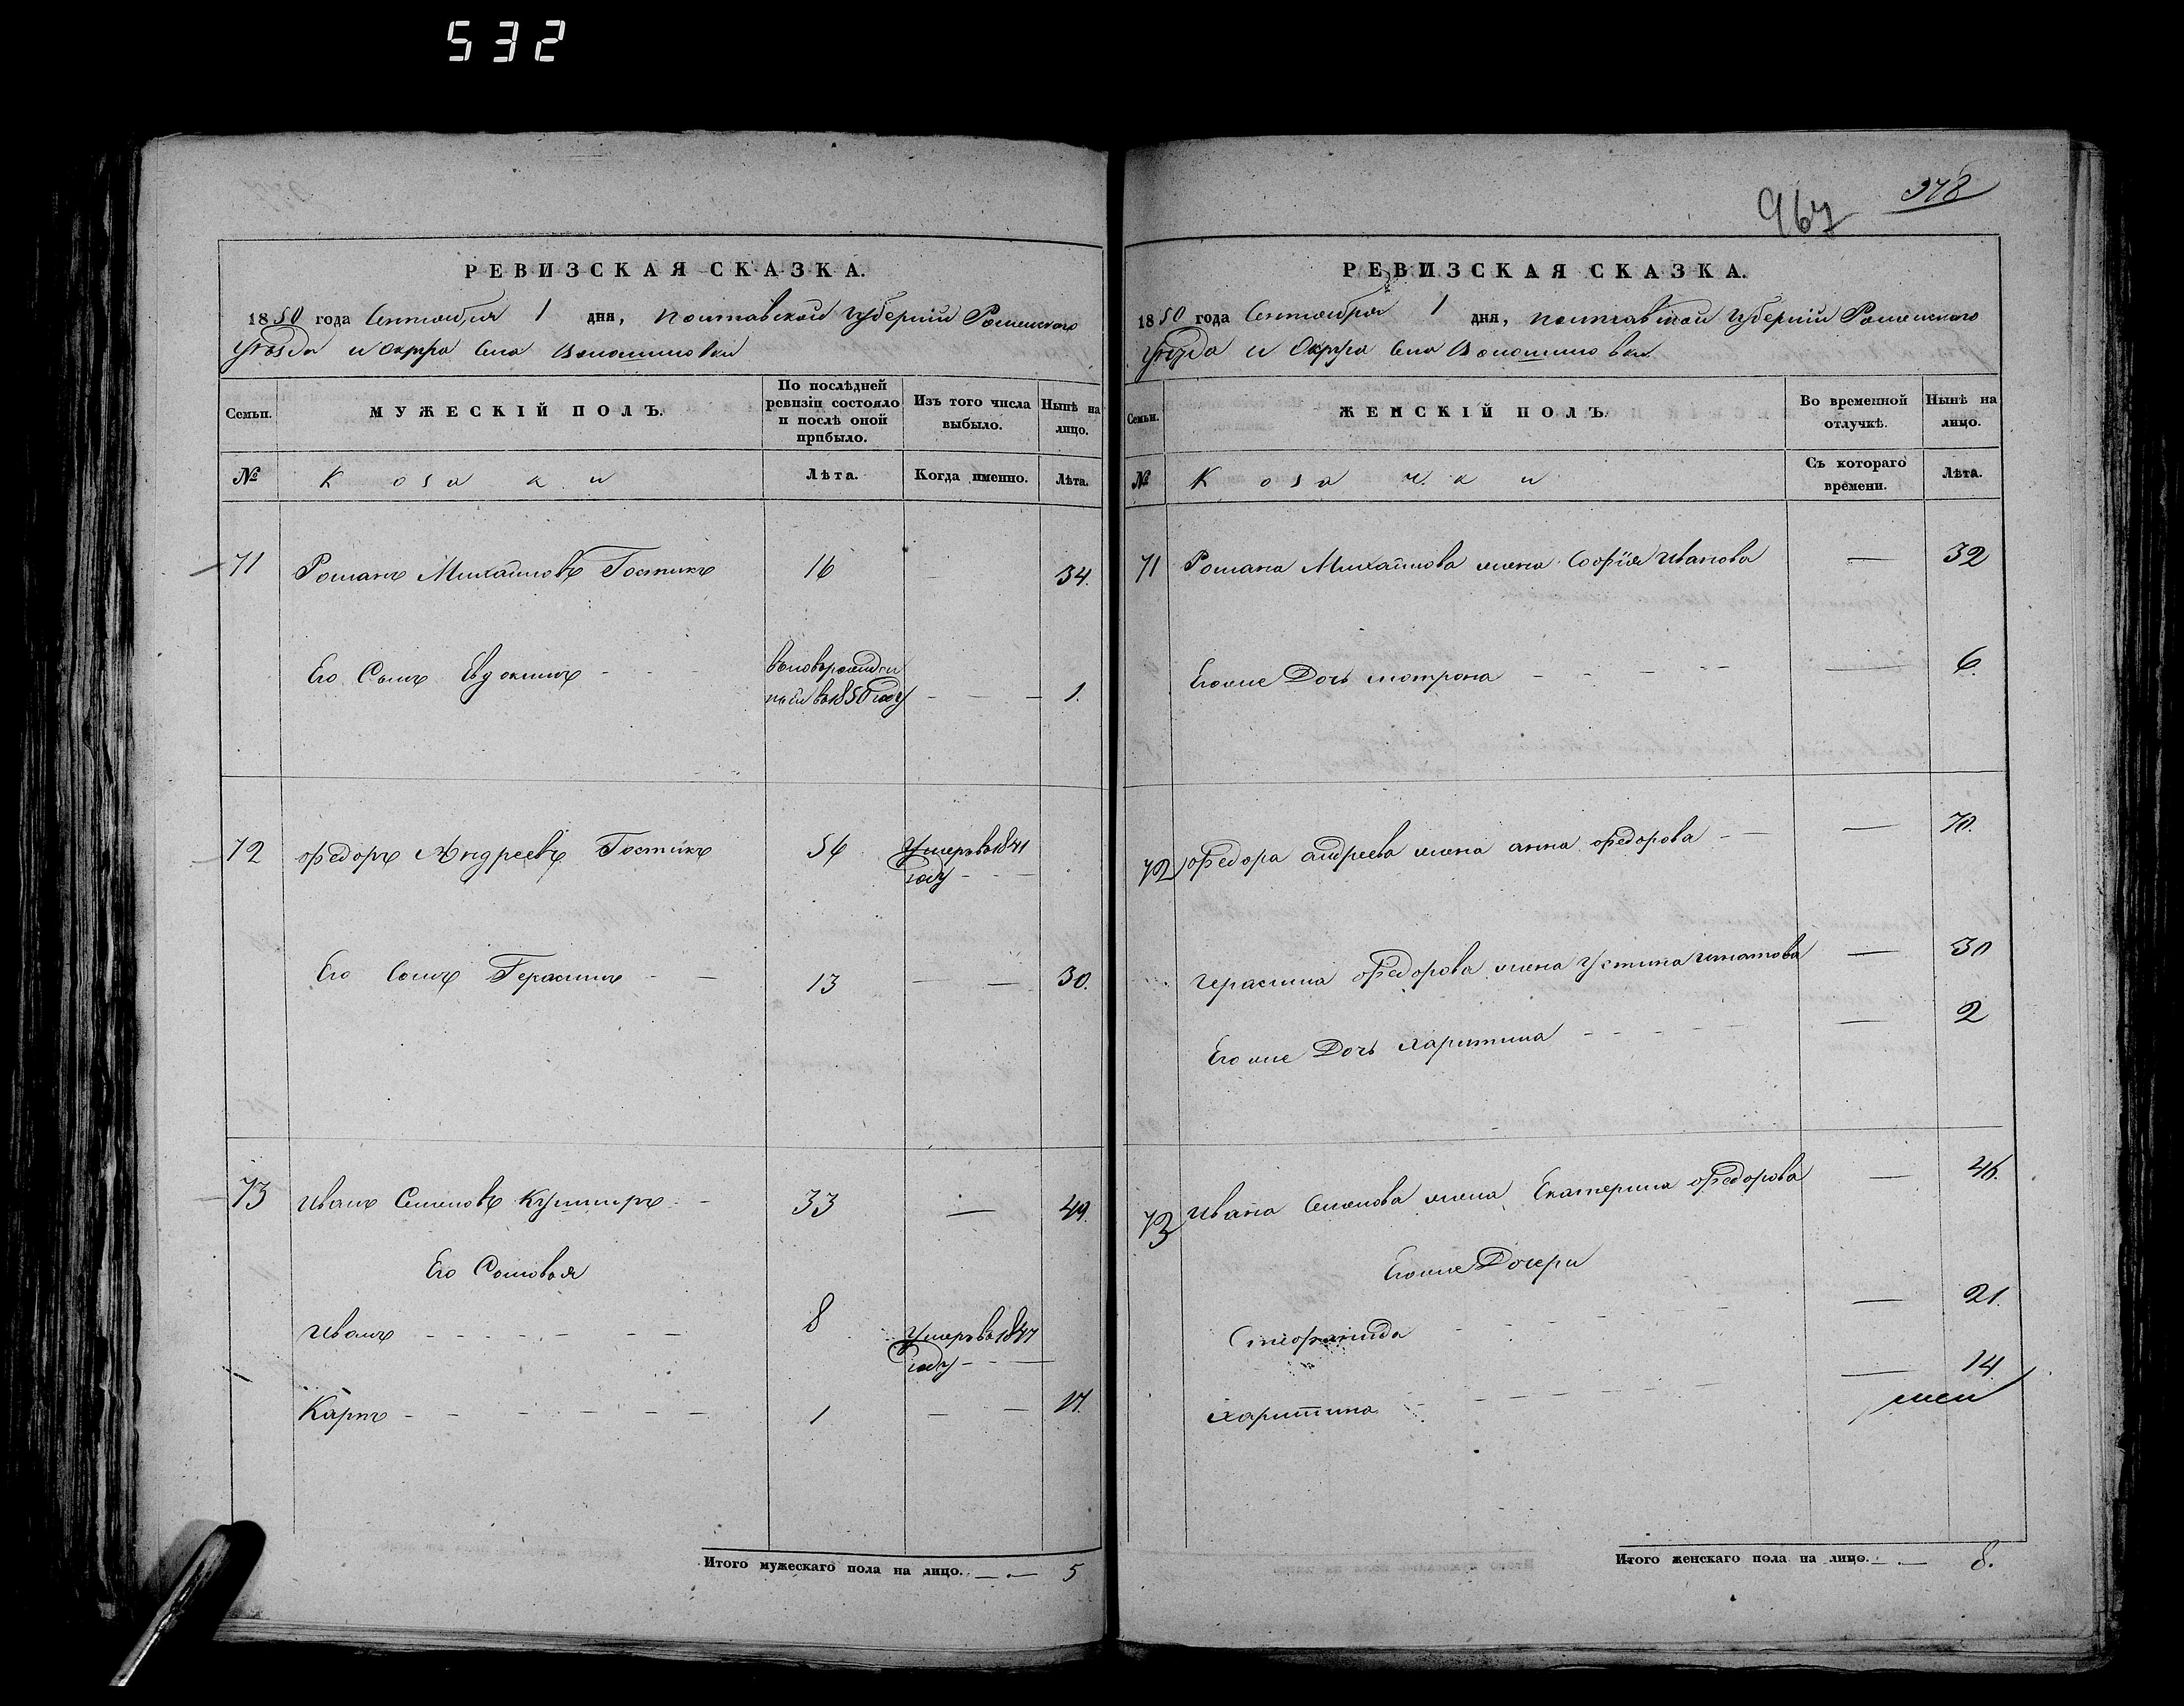 532
967
378
РЕВИЗСКАЯ СКАЗКА.
1850 года Сентября 1 дня, Полтавской Губерніи Роменского
Уѣзда и Округа Села Волошиновки
Семьи.
МУЖЕСКІЙ ПОЛЪ.
По послѣдней
ревизіи состояло
и послѣ оной
прибыло.
Изъ того числа
выбыло.
Нынѣ на
лицо.
№
Козаки
Лѣта.
Когда именно.
Лѣта.
71 Романъ Михайловъ Гостикъ 16 — 34.
Его Сынъ Евдокимъ - - - вновьрожден
ный въ 1850 году - — — 1.
72 Федоръ Андреевъ Гостикъ 56 Умеръ въ 1841
году - - —
Его Сынъ Герасимъ - — 13 — — 30.
73 Иванъ Семеновъ Кушниръ - 33 — 49.
Его Сыновья
Иванъ - - - - - — — 8 Умеръ въ 1847
году - - —
Карпъ - - - — — — 1 — — 17.
Итого мужескаго пола на лицо. — — 5
РЕВИЗСКАЯ СКАЗКА.
1850 года Сентября 1 дня, Полтавской Губерніи Роменского
Уѣзда и Округа Села Волошиновки
Семьи.
ЖЕНСКІЙ ПОЛЪ.
Во временной
отлучкѣ.
Нынѣ на
лицо.
№
Козачки
Съ котораго
времени.
Лѣта.
71 Романа Михайлова жена Софія Иванова — 32
Егоже Дочь Мотрона - - - - - — 6.
72 Федора Андреева жена Анна Федорова - — — 70.
Герасима Федорова жена Устина Игнатова — 30
Егоже Дочь Харитина - - - - - — 2
73 Ивана Семенова жена Екатерина Федорова — 46.
Егоже Дочери
Стефанида - - - - - — 21.
Харитина - - — — — — 14
Итого женскаго пола на лицо. — — 8.